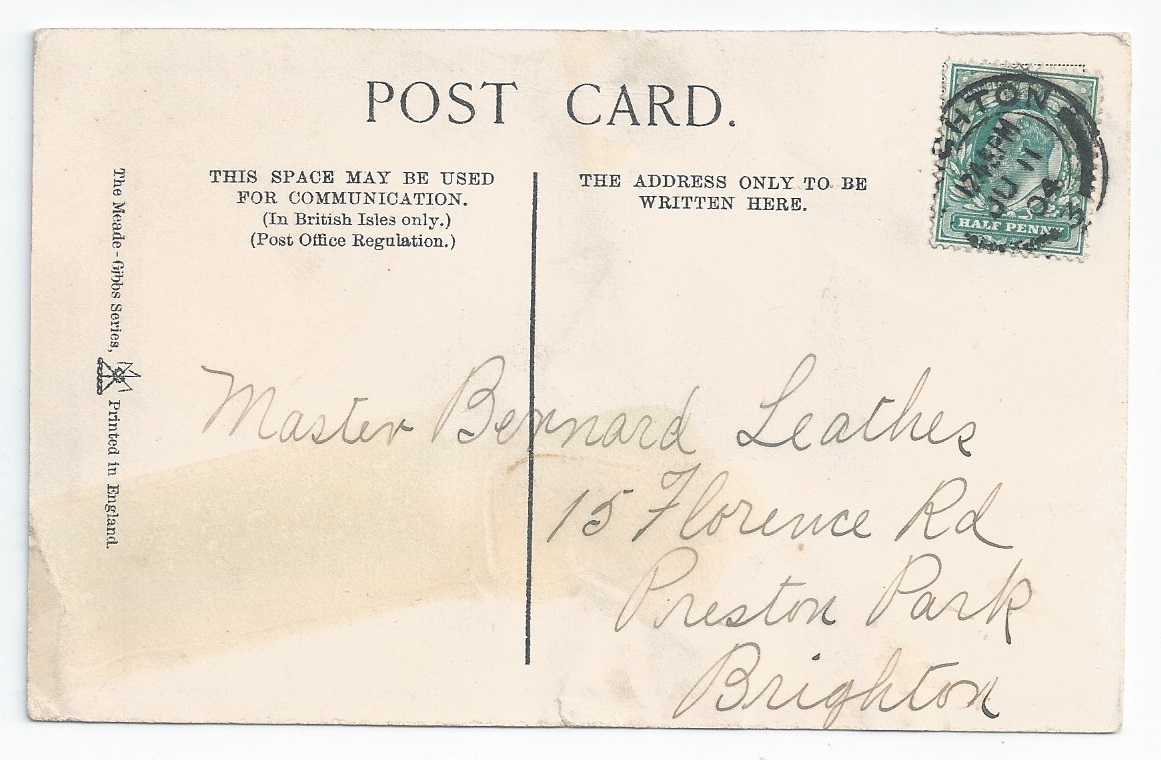 POST CARD.
THIS SPACE MAY BE USED
FOR COMMUNICATION.
(In British Isles only.)
(Post Office Regulation.)
THE ADDRESS ONLY TO BE
WRITTEN HERE.
HTON
12 45 PM
JU 11
04
HALF PENNY
The Meade-Gibbs Series, Printed in England.
Master Bernard Leathes
15 Florence Rd
Preston Park
Brighton